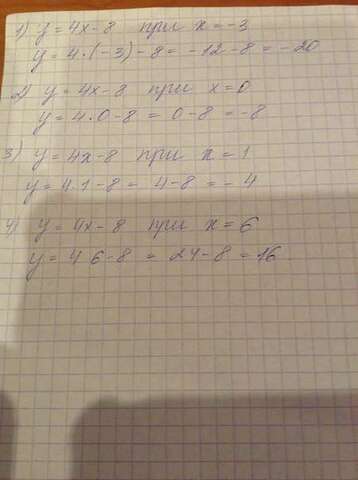 1) y = 4x - 8 при x = -3
y = 4 · (-3) - 8 = -12 - 8 = -20
2) y = 4x - 8 при x = 0
y = 4 · 0 - 8 = 0 - 8 = -8
3) y = 4x - 8 при x = 1
y = 4 · 1 - 8 = 4 - 8 = -4
4) y = 4x - 8 при x = 6
y = 4 6 - 8 = 24 - 8 = 16